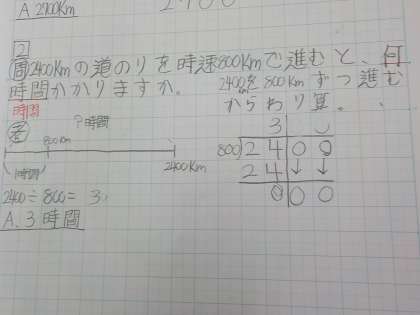 A 2700Km
2
問2400Kmの道のりを時速800Kmで進むと、何
時間かかりますか。
2400を800Kmずつ進む
からわり算。
時間
考
?時間
800Km
1時間
2400Km
2400÷800=3
A.3時間
3
800)2400
24↓↓
000